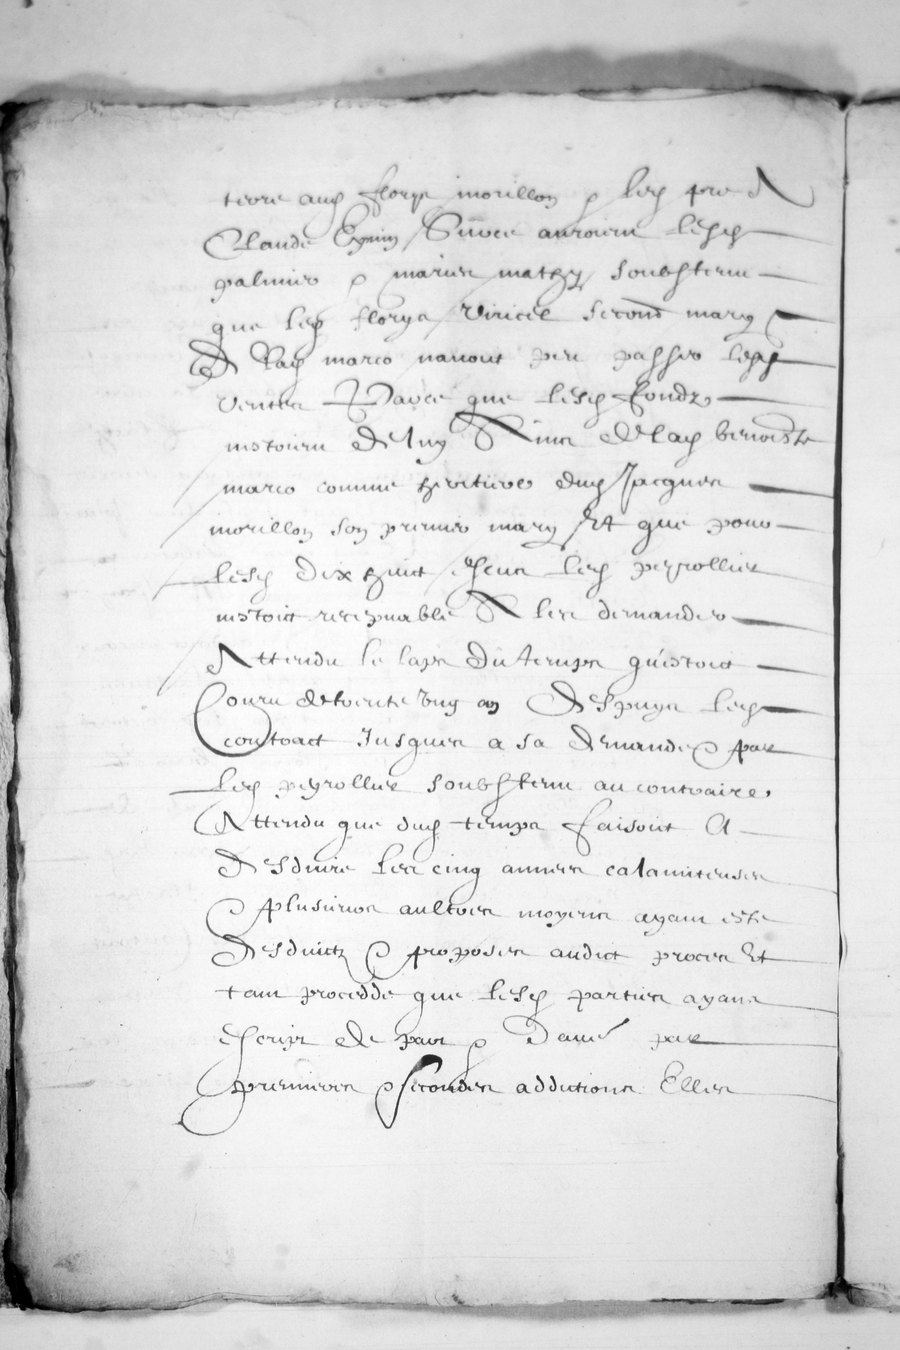 terre aud florys morillon & led
Claude Eymin auroient lesd
palmier & maries mathy soubstenu
que led florys Viricel second mary
Et lad marco navoit peu passer lesd
ventes Parce que lesd fondz
nestoient de luy Ains de lad benoiste
marco comme heritiere dud Jacques
morillon son premier mary Et que pour
lesd dix huict escus led peyrollier
nestoit recepvable A les demander
Attendu le laps du temps questoit
Couru de trente ung an Despuys led
contract Jusques a sa demande & par
led peyrollier soubstenu au contraire
Attendu que dud temps faisoit A
desduire les cinq annees calamiteuses
& plusieurs aultres moyens ayant este
desduictz & proposes audict proces Et
tant procedde que lesd parties ayans
escript de part & Dautre par
premieres & secondes additions Elles